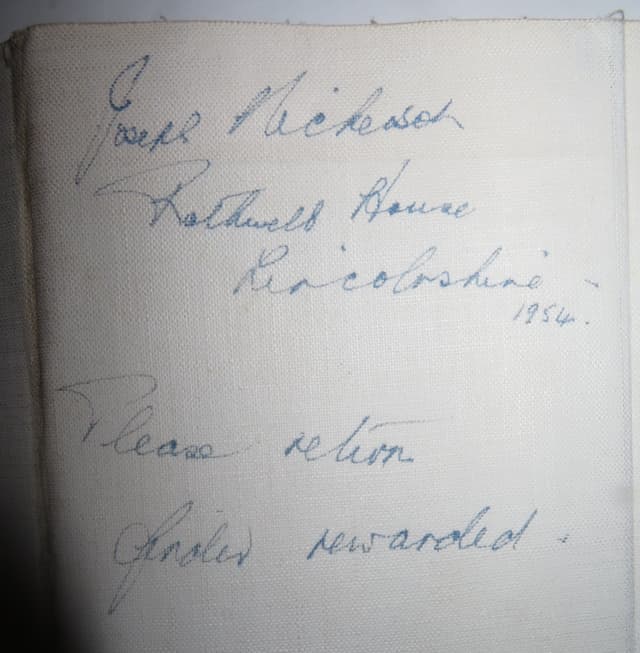 Joseph Nickerson
Rothwell House
Lincolnshire -
1954.
Please return
finder rewarded.